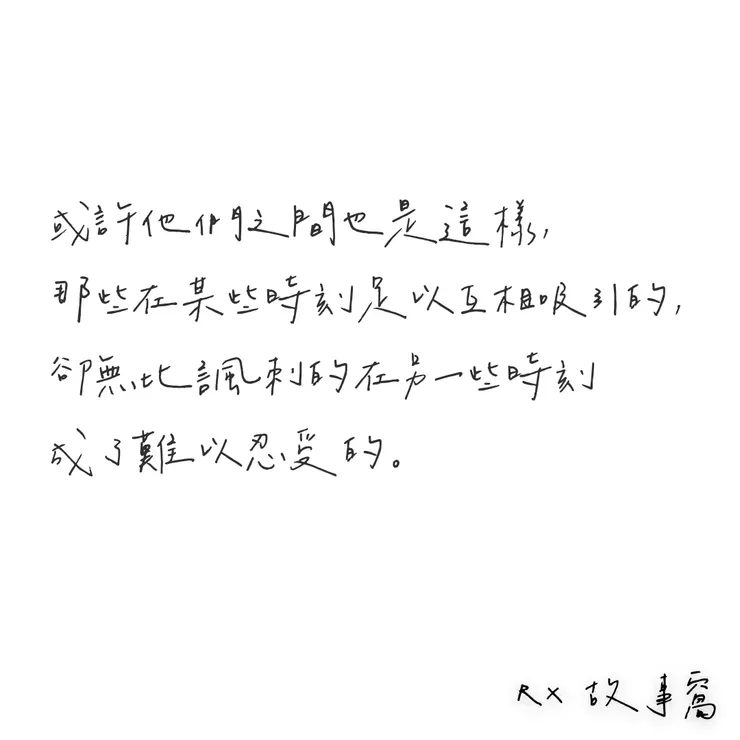 或許他們之間也是這樣，
那些在某些時刻足以互相吸引的，
卻無比諷刺的在另一些時刻
成了難以忍受的。
RX 故事窩